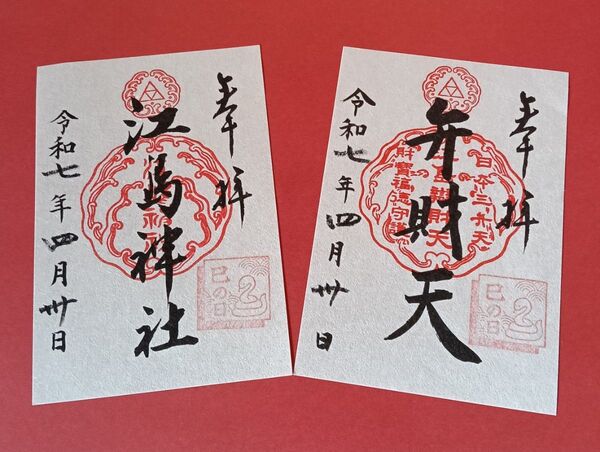 奉拝
江島神社
令和七年四月卅日
巳の日
奉拝
弁財天
日本三大弁天
財寳福徳守護
令和七年四月卅日
巳の日